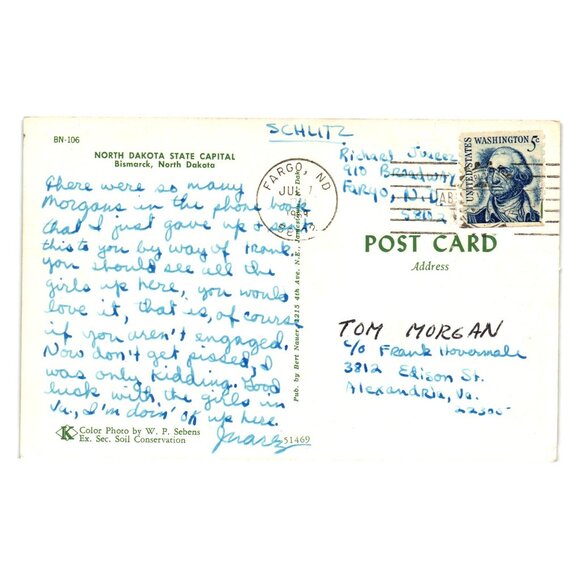 BN-106
NORTH DAKOTA STATE CAPITAL
Bismarck, North Dakota
There were so many
Morgans in the phone book
that I just gave up & sent
this to you by way of Frank.
You should see all the
girls up here, you would
love it, that is, of course
if you aren't engaged.
Now don't get pissed, I
was only kidding. Good
luck with the girls in
Va., I'm doin' OK up here.
Juarez
Color Photo by W. P. Sebens
Ex. Sec. Soil Conservation
K
51469
Pub. by Bert Nauer, 1215 4th Ave. N.E., Dak.
SCHLITZ
Richard Juarez
910 Broadway
Fargo, N.D.
58102
FARGO ND
UNITED STATES
WASHINGTON 5c
POST CARD
Address
TOM MORGAN
c/o Frank Hovermale
3812 Edison St.
Alexandria, Va.